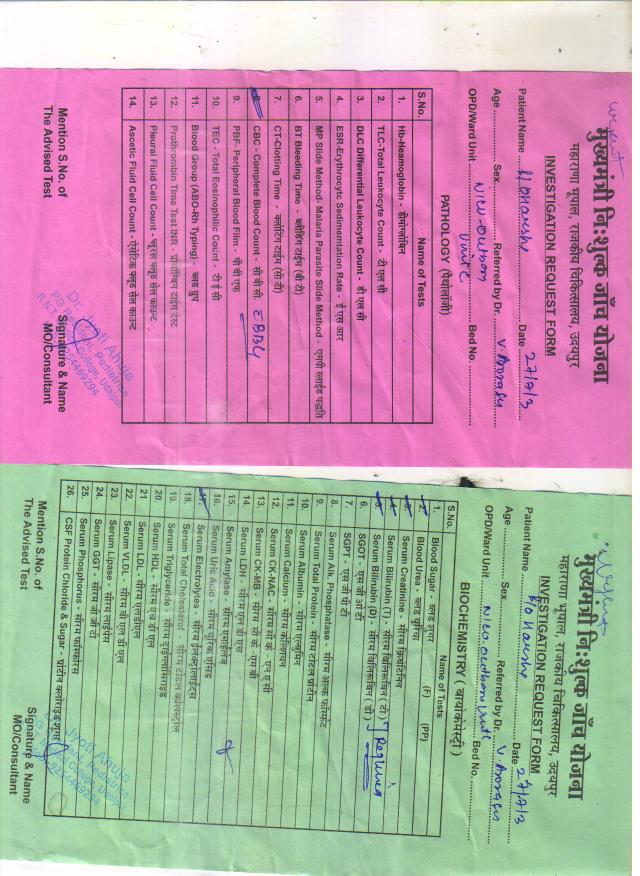 urgent
मुख्यमंत्री निःशुल्क जाँच योजना
महाराणा भूपाल, राजकीय चिकित्सालय, उदयपुर
INVESTIGATION REQUEST FORM
Patient Name Date
Age Sex Referred by Dr.
OPD/Ward Unit Bed No.
PATHOLOGY (पैथोलॉजी)
S.No. Name of Tests
1. Hb-Heamoglobin - हीमोग्लोबिन
2. TLC-Total Leukocyte Count - टी एल सी
3. DLC Differential Leukocyte Count - डी एल सी
4. ESR-Erythrocytc Sedimentation Rate - ई एस आर
5. MP Slide Method- Malaria Parasite Slide Method - एमपी स्लाईड पद्धति
6. BT Bleeding Time - ब्लीडिंग टाईम (बी टी)
7. CT-Clotting Time - क्लोटिंग टाईम (सी टी)
8. CBC - Complete Blood Count - सी बी सी.
9. PBF- Peripheral Blood Film - पी बी एफ
10. TEC - Total Eosinophilic Count - टी ई सी
11. Blood Group (ABO-Rh Typing) - ब्लड ग्रुप
12. Prothrombin Time Test INR - प्रोथ्रोम्बिन टाईम टेस्ट
13. Pleural Fluid Cell Count - प्लूरल फ्लूड सेल काउन्ट
14. Ascetic Fluid Cell Count - ऐसेटिक फ्लूड सेल काउन्ट
Mention S.No. of
The Advised Test
Signature & Name
MO/Consultant
Dr. Jyoti Ahuja
मुख्यमंत्री निःशुल्क जाँच योजना
महाराणा भूपाल, राजकीय चिकित्सालय, उदयपुर
INVESTIGATION REQUEST FORM
Patient Name Date
Age Sex Referred by Dr.
OPD/Ward Unit Bed No.
BIOCHEMISTRY (बायोकेमेस्ट्री)
S.No. Name of Tests
1. Blood Sugar - ब्लड शुगर (F) (PP)
2. Blood Urea - ब्लड यूरिया
3. Serum Creatinine - सीरम क्रियेटिनिन
4. Serum Bilirubin (T) - सीरम बिलिरूबिन (टी)
5. Serum Bilirubin (D) - सीरम बिलिरूबिन (डी)
6. SGOT - एस जी ओ टी
7. SGPT - एस जी पी टी
8. Serum Alk. Phosphatase - सीरम अल्क फॉस्फेट
9. Serum Total Protein - सीरम टोटल प्रोटीन
10. Serum Albumin - सीरम एल्बुमिन
11. Serum Calcium - सीरम कैल्शियम
12. Serum CK-NAC - सीरम सी के - एन ए सी
13. Serum CK-MB - सीरम सी के - एम बी
14. Serum LDH - सीरम एल डी एच
15. Serum Amylase - सीरम एमाईलेज
16. Serum Uric Acid - सीरम यूरिक एसिड
17. Serum Electrolytes - सीरम ईलेक्ट्रोलाईट्स
18. Serum Total Cholesterol - सीरम टोटल कोलेस्ट्रोल
19. Serum Triglyceride - सीरम ट्राईग्लीसराइड
20. Serum HDL - सीरम एच डी एल
21. Serum LDL - सीरम एलडीएल
22. Serum VLDL - सीरम वी एल डी एल
23. Serum Lipase - सीरम लाईपेस
24. Serum GGT - सीरम जी जी टी
25. Serum Phosphorus - सीरम फॉस्फोरस
26. CSF Protein Chloride & Sugar - प्रोटीन क्लोराइड शुगर
Mention S.No. of
The Advised Test
Signature & Name
MO/Consultant
Jyoti Ahuja